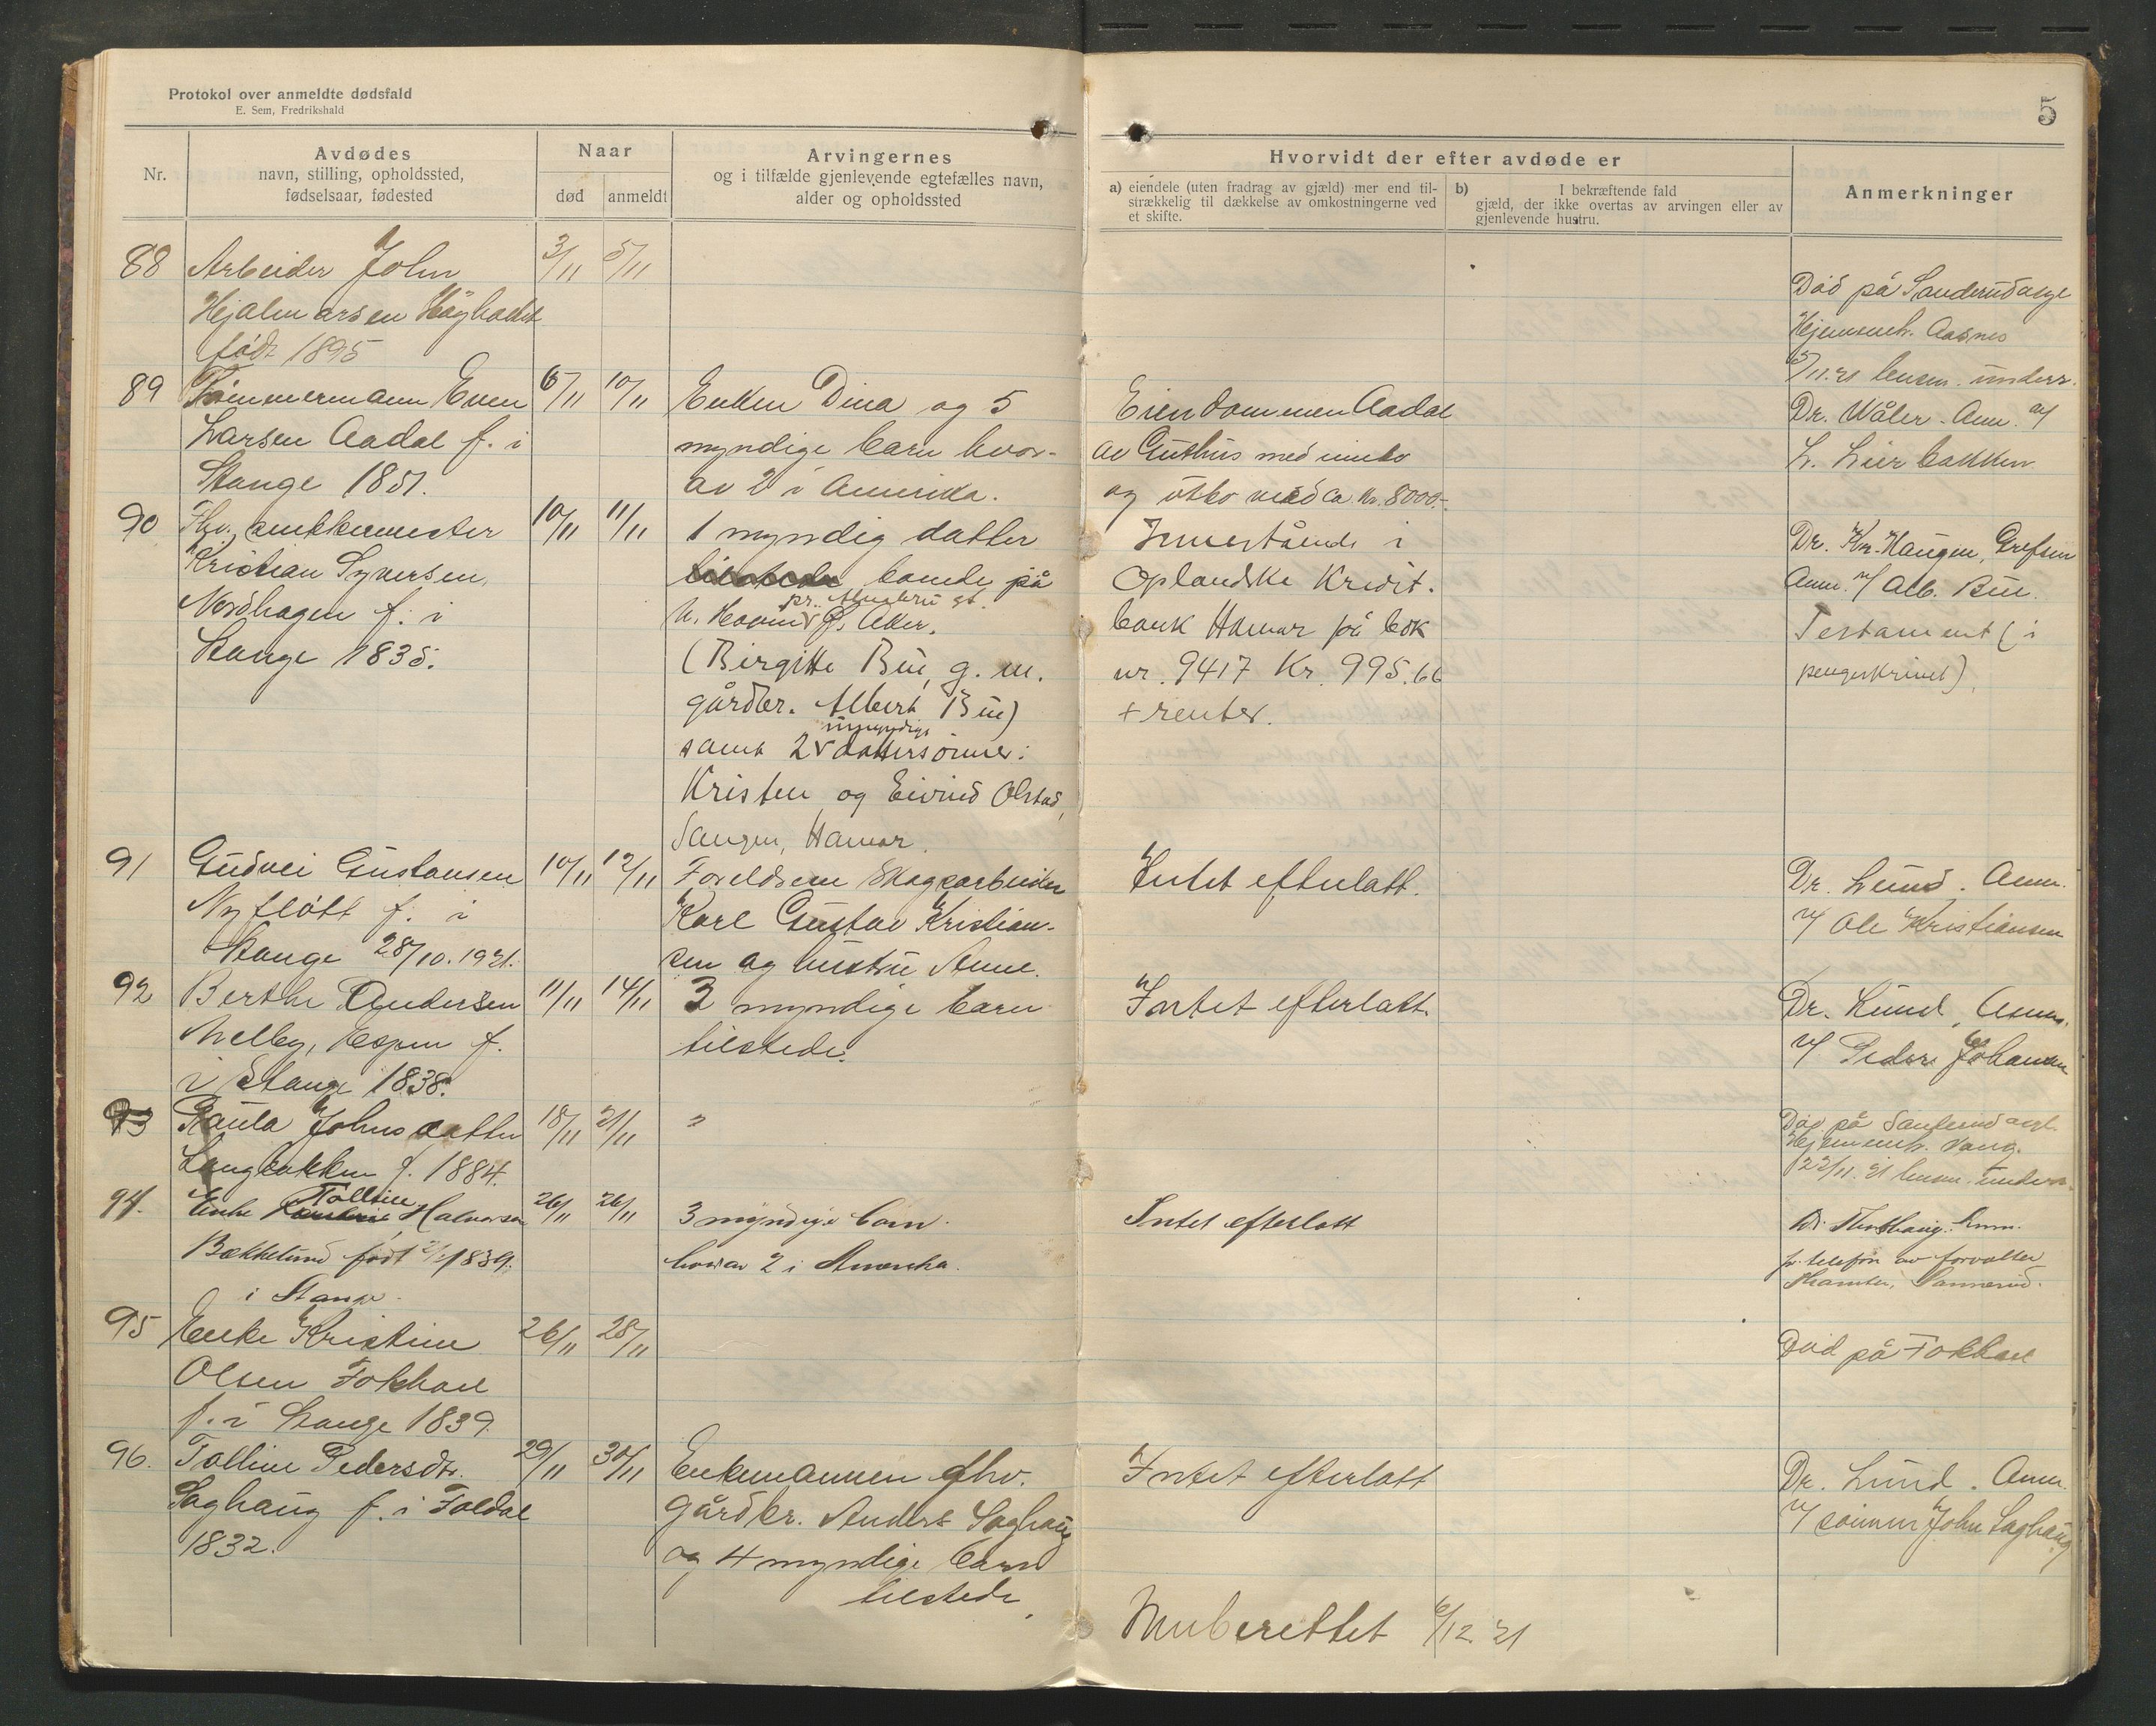 Protokol over anmeldte dødsfald
E. Sem, Fredrikshald
5
Nr.
Avdødes
navn, stilling, opholdssted,
fødselsaar, fødested
Naar
død
anmeldt
Arvingernes
og i tilfælde gjenlevende egtefælles navn,
alder og opholdssted
Hvorvidt der efter avdøde er
a) eiendele (uten fradrag av gjæld) mer end til-
strækkelig til dækkelse av omkostningerne ved
et skifte.
b) I bekræftende fald
gjæld, der ikke overtas av arvingen eller av
gjenlevende hustru.
Anmerkninger
88
Arbeider John
Hjalmarsen
født 1895
3/11
5/11
Død på Sanderud asyl
Hjemmeh. Aasnes
5/11.21 lensm. underr.
89
Tømmermann Even
Larsen Aadal f. i
Stange 1851.
6/11
10/11
Enken Dina og 5
myndige barn hvor-
av 2 i Amerika.
Eiendommen Aadal
av Guthus med innbo
og utbo verd ca. Kr. 8000.-
Dr. Wåler. Anm. av
L. Lierbakken
90
Fhv. smikkermester
Kristian Syversen,
Nordhagen f. i
Stange 1835.
10/11
11/11
1 myndig datter
boende på
pr.
Ø. Aker.
(Birgitte Bui, g. m.
gårdbr. Albert Bui)
umyndige
samt 2 v dattersønner:
Kristen og Eivind Olstad,
Sangen, Hamar.
Innestående i
Oplandske Kredit-
bank Hamar på bok
nr. 9417 Kr. 995.66
+ renter.
Dr. Kr. Haugen, Grefsen
Anm. v/ Alb. Bui.
Testament (i
pengeskrinet).
91
Gudvei Gustavsen
Nyfløtt f. i
Stange 28/10.1921.
10/11
12/11
Foreldrene Skogsarbeider
Karl Gustav Kristian-
sen og hustru Anne.
Intet efterlatt.
Dr. Lund. Anm.
v/ Ole Kristiansen
92
Berthe Andersen
Melby, Espen f.
i Stange 1838.
11/11
14/11
3 myndige barn
tilstede.
Intet efterlatt.
Dr. Lund, Anm.
v/ Peder Johansen
93
Paula Johnsdatter
Langbakken f. 1884.
18/11
21/11
"
Død på Sanderud asyl.
Hjemmeh. Vang.
22/11.21 lensm. underr.
94.
Tolline
Enke Halvorsen
Bækkelund født 2/1 1839.
i Stange.
26/11
26/11
3 myndige barn
hvorav 2 i Amerika.
Intet efterlatt
Anm.
pr. telefon av forvalter
95
Enke Kristine
Olsen Fokhol
f. i Stange 1839.
26/11
28/11
Død på Fokhol
96.
Tolline Pedersdtr.
Saghaug f. i Foldal
1832.
29/11
30/11
Enkemannen fhv.
gårdbr. Anders Saghaug
og 4 myndige barn
tilstede.
Intet efterlatt
Dr. Lund. Anm.
v/ sønnen John Saghaug
Innberettet 6/12.21